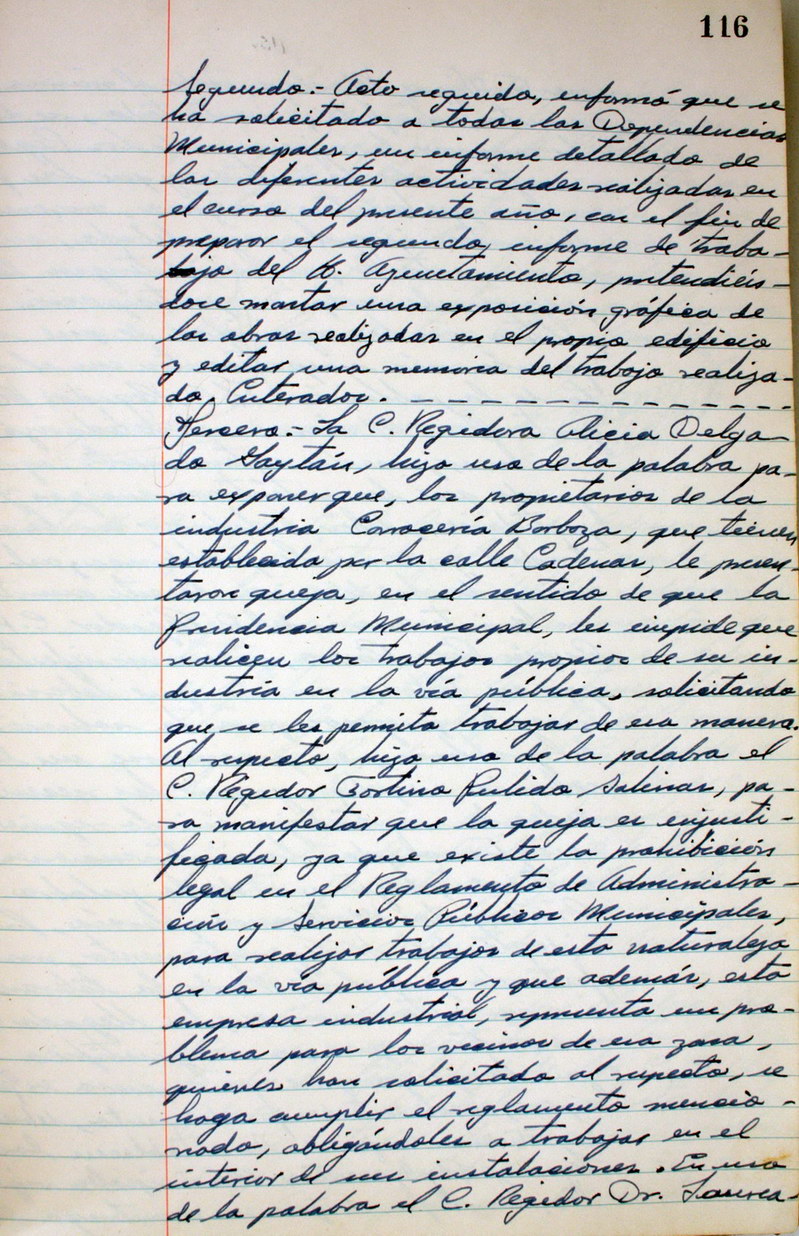 116
Segundo.- Acto seguido, informó que se
ha solicitado a todas las Dependencias
Municipales, un informe detallado de
las diferentes actividades realizadas en
el curso del presente año, con el fin de
preparar el segundo informe de traba-
jo del H. Ayuntamiento, pretendién-
dose montar una exposición gráfica de
las obras realizadas en el propio edificio
y editar una memoria del trabajo realiza-
do. Enterados. - - - - - - - - - - - -
Tercero.- La C. Regidora Alicia Delga-
do Gaytán, hizo uso de la palabra pa-
ra exponer que, los propietarios de la
industria Carrocería Borboza, que tienen
establecida por la calle Cadenas, le presen-
taron queja, en el sentido de que la
Presidencia Municipal, les impide que
realicen los trabajos propios de su in-
dustria en la vía pública, solicitando
que se les permita trabajar de esa manera.
Al respecto, hizo uso de la palabra el
C. Regidor Fortino Pulido Salinas, pa-
ra manifestar que la queja es injusti-
ficada, ya que existe la prohibición
legal en el Reglamento de Administra-
ción y Servicios Públicos Municipales,
para realizar trabajos de esta naturaleza
en la vía pública y que además, esta
empresa industrial, representa un pro-
blema para los vecinos de esa zona,
quienes han solicitado al respecto, se
haga cumplir el reglamento mencio-
nado, obligándoles a trabajar en el
interior de sus instalaciones. En uso
de la palabra el C. Regidor Dr. Laurea-